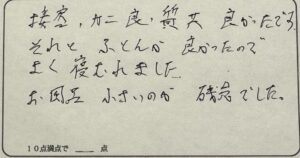 接客,カニ 良,質共 良かったです
それと ふとんが 良かったので
よく寝むれました
お風呂 小さいのが 残念でした。
10点満点で 点